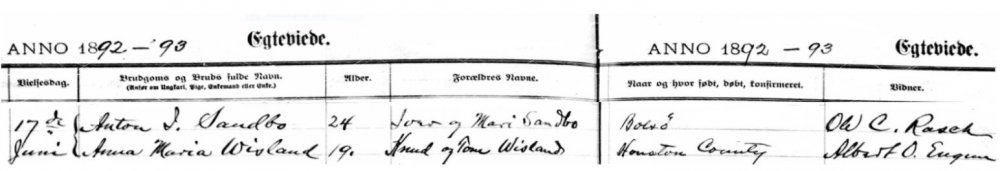 ANNO 1892-'93 Egteviede. ANNO 1892 - 93 Egteviede.
Vielsesdag. Brudgoms og Bruds fulde Navn. Alder. Forældres Navne. Naar og hvor født, døbt, konfirmeret. Vidner.
(Anfør om Ungkarl, Pige, Enkemand eller Enke.)
17de Anton I. Sandbo 24 Iver og Mari Sandbo Bolsö Ole C. Rasch
Juni Anna Maria Wisland 19. Knud og Tone Wisland Houston County Albert O.